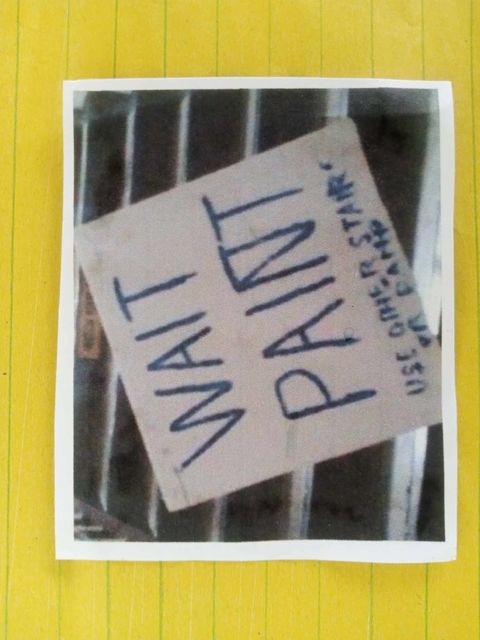 WAIT
PAINT
USE OTHER STAIR
OR RAMP